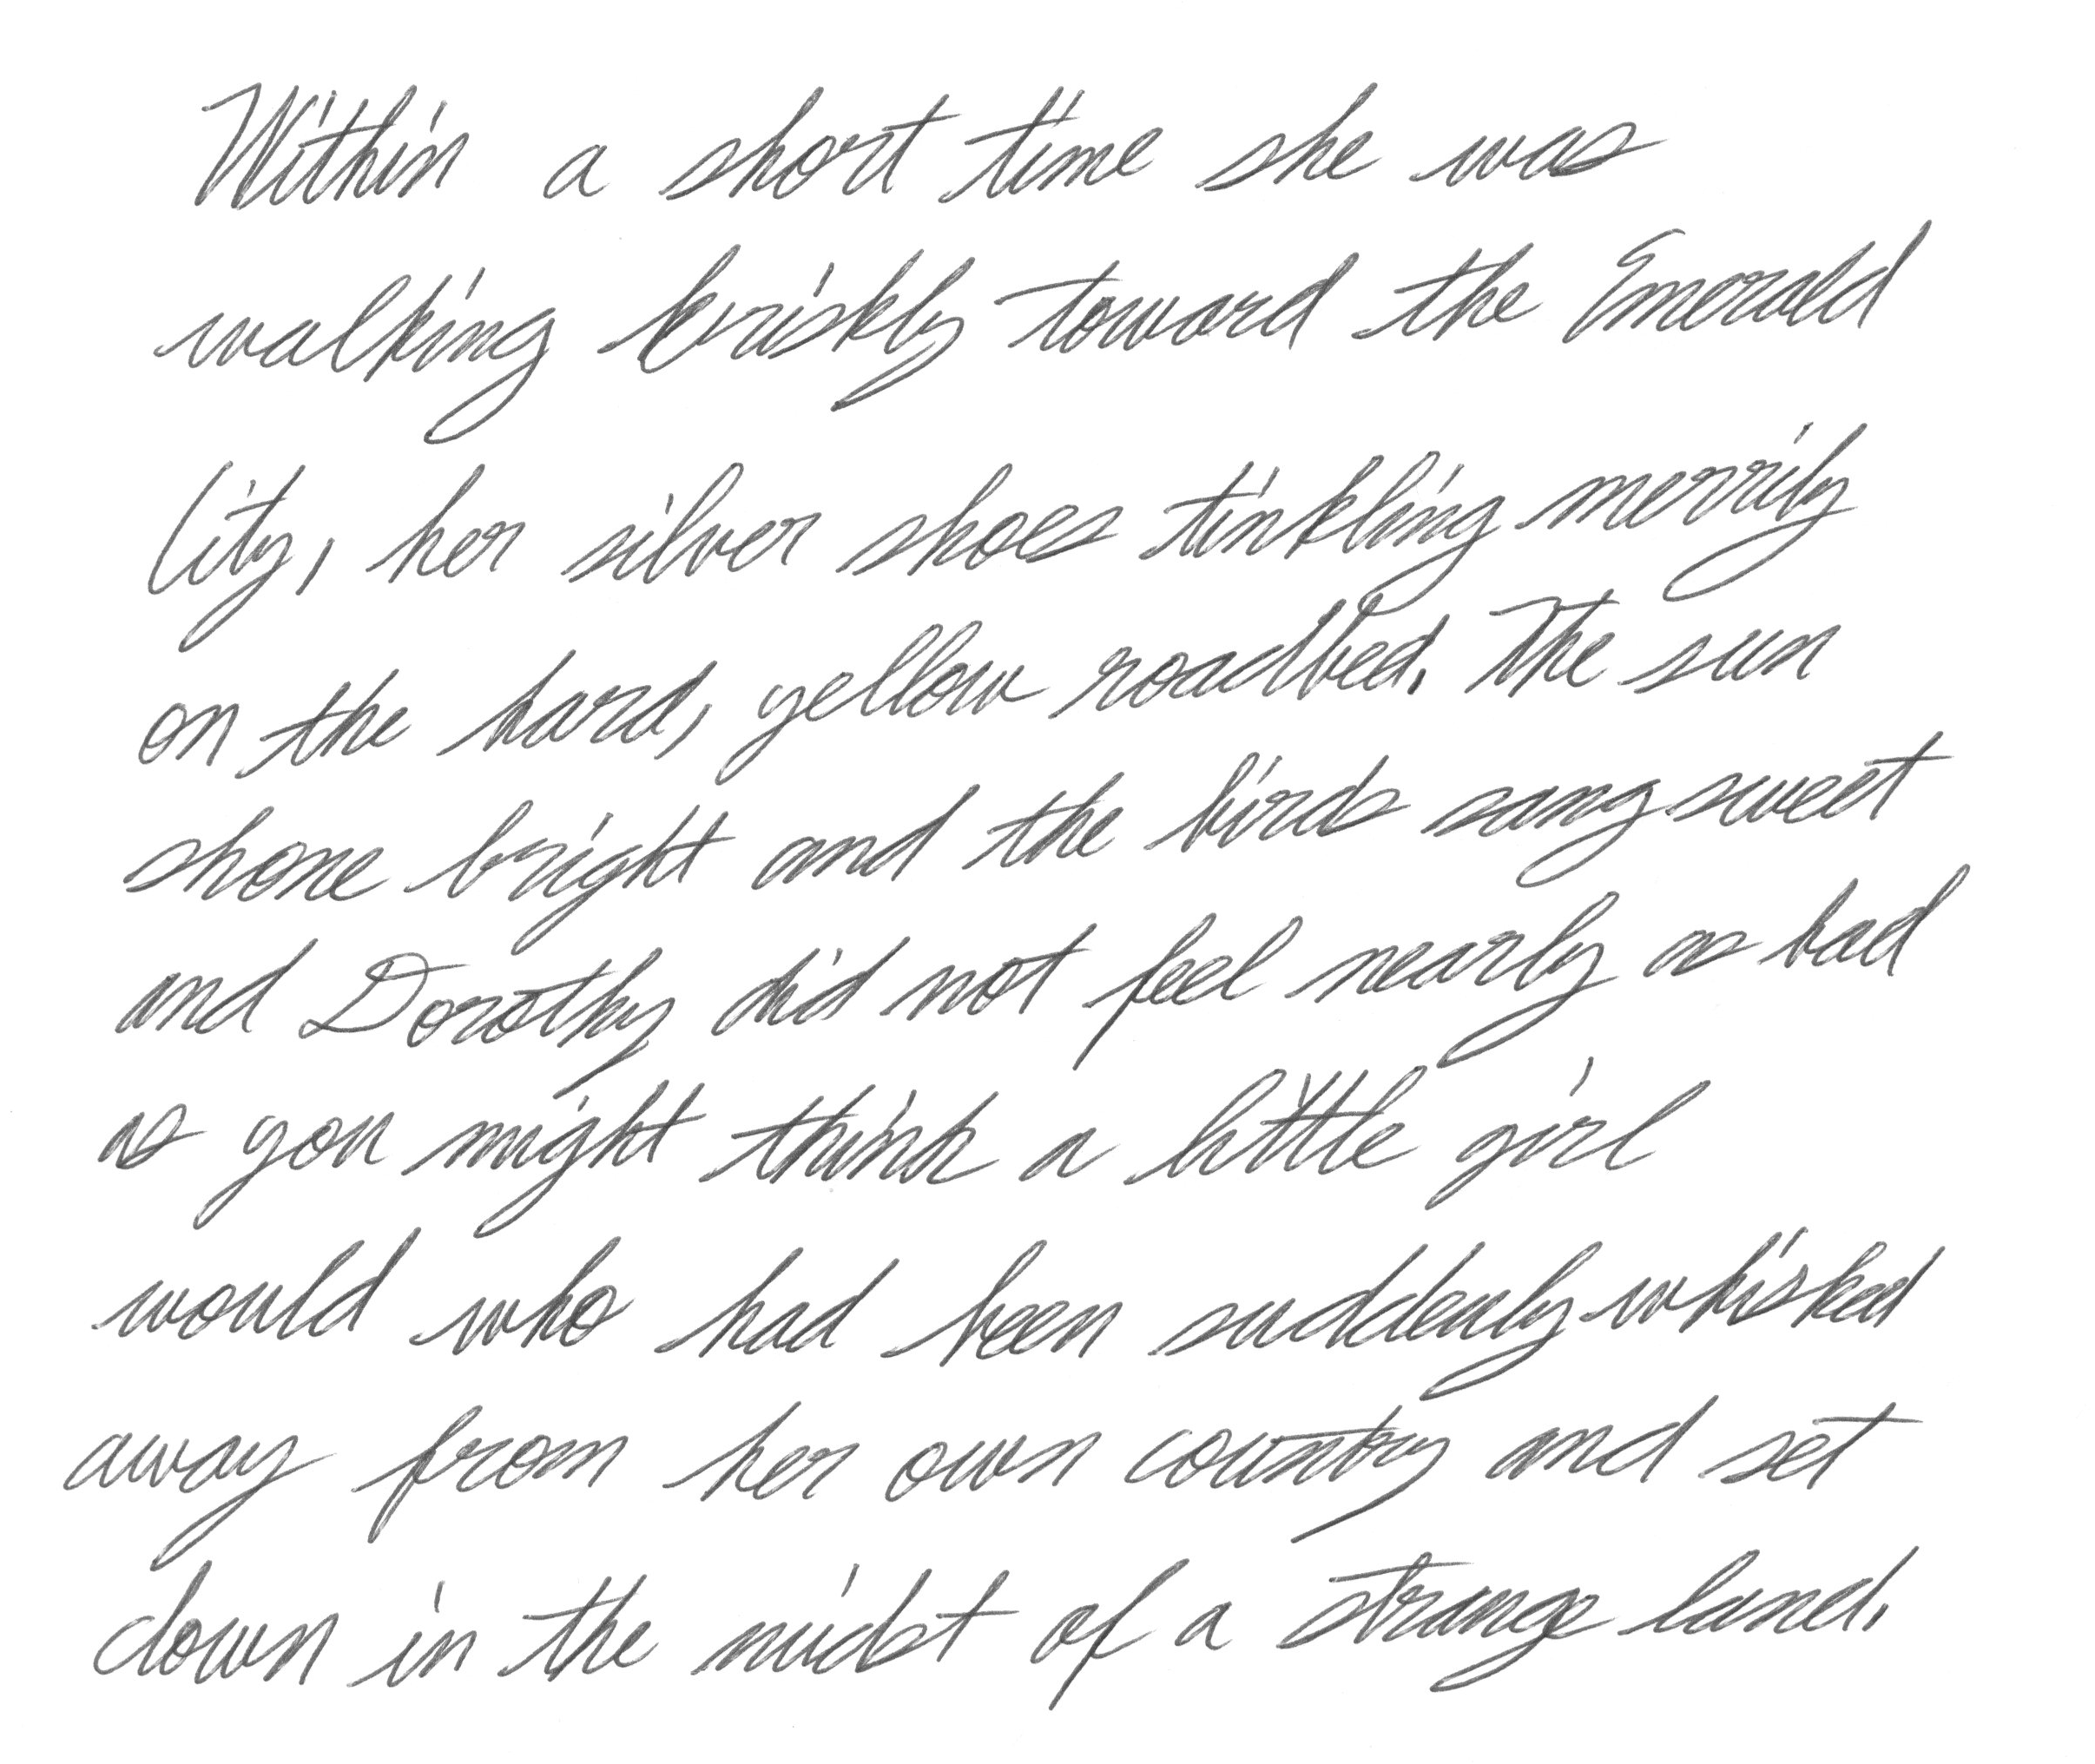 Within a short time she was
walking briskly toward the Emerald
City, her silver shoes tinkling merrily
on the hard, yellow roadbed. The sun
shone bright and the birds sang sweet
and Dorothy did not feel nearly as bad
as you might think a little girl
would who had been suddenly whisked
away from her own country and set
down in the midst of a strange land.